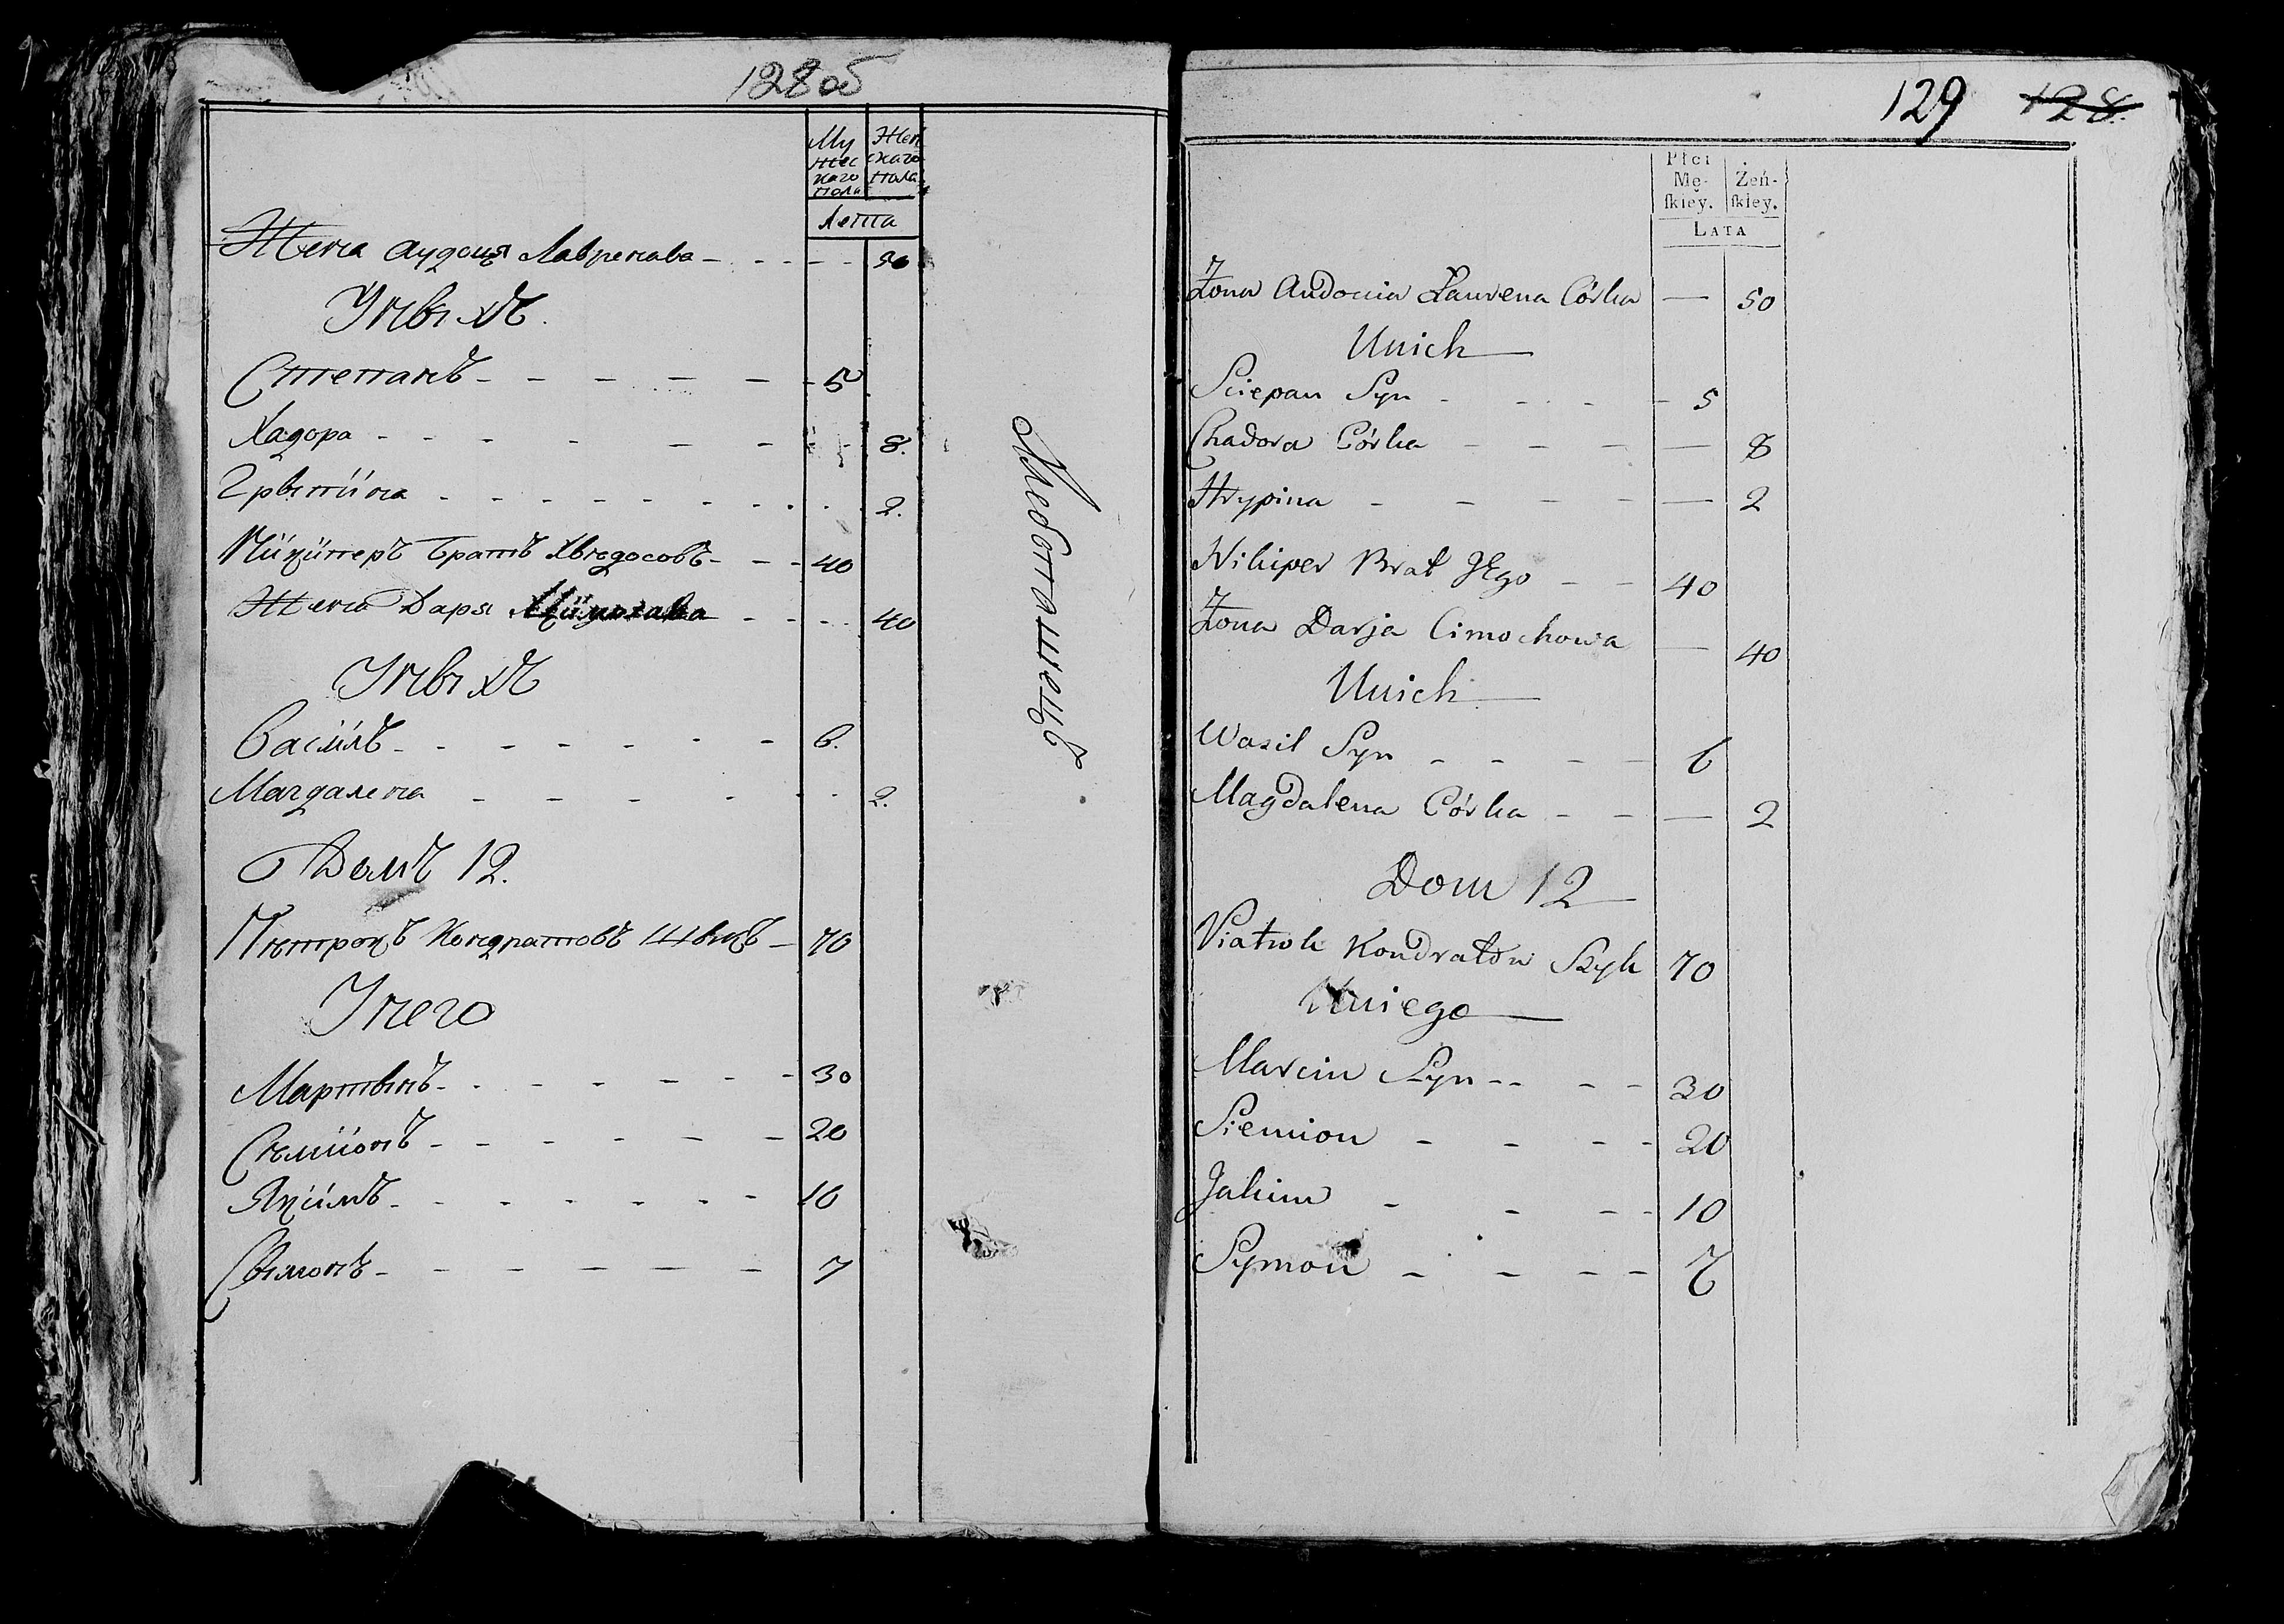 128об
Му
жес
каго
пола
Жен
скаго
пола
Лета
Жена Аудоця Лавренава - - - - 50
У нвіхъ.
Степанъ - - - - - - 5
Хадора - - - - - - - 8.
Грвіпіна - - - - - - - - 2.
Нікіперъ братъ Хведосовъ - - - 40
Жена Даря - - - - 40
У нвіхъ
Васіль - - - - - - - 6.
Магдалена - - - - - - 2.
Домъ 12.
Пётрокъ Кондратовъ Швікъ - 70
У него
Мартвінъ - - - - - - - 30
Семіонъ - - - - - - 20
Якімъ - - - - - - - 10
Свімонъ - - - - - - 7
129 128.
Płci
Mę-
ſkiey.
Żeń-
ſkiey.
LATA
Żona Audocia Łaurena Córka — 50
U nich
Sciepan Syn - - - - 5
Chadora Córka - - - — 8
Hrypina - - - - — 2
Nikiper Brat JEgo - - 40
Żona Darja Cimochowa — 40
U nich
Wasil Syn - - - - 6
Magdalena Córka - - — 2
Dom 12
Piatrok Kondratów Szyk 70
U niego
Marcin Syn - - - - 30
Siemion - - - - 20
Jakim - - - - 10
Symon - - - - 7